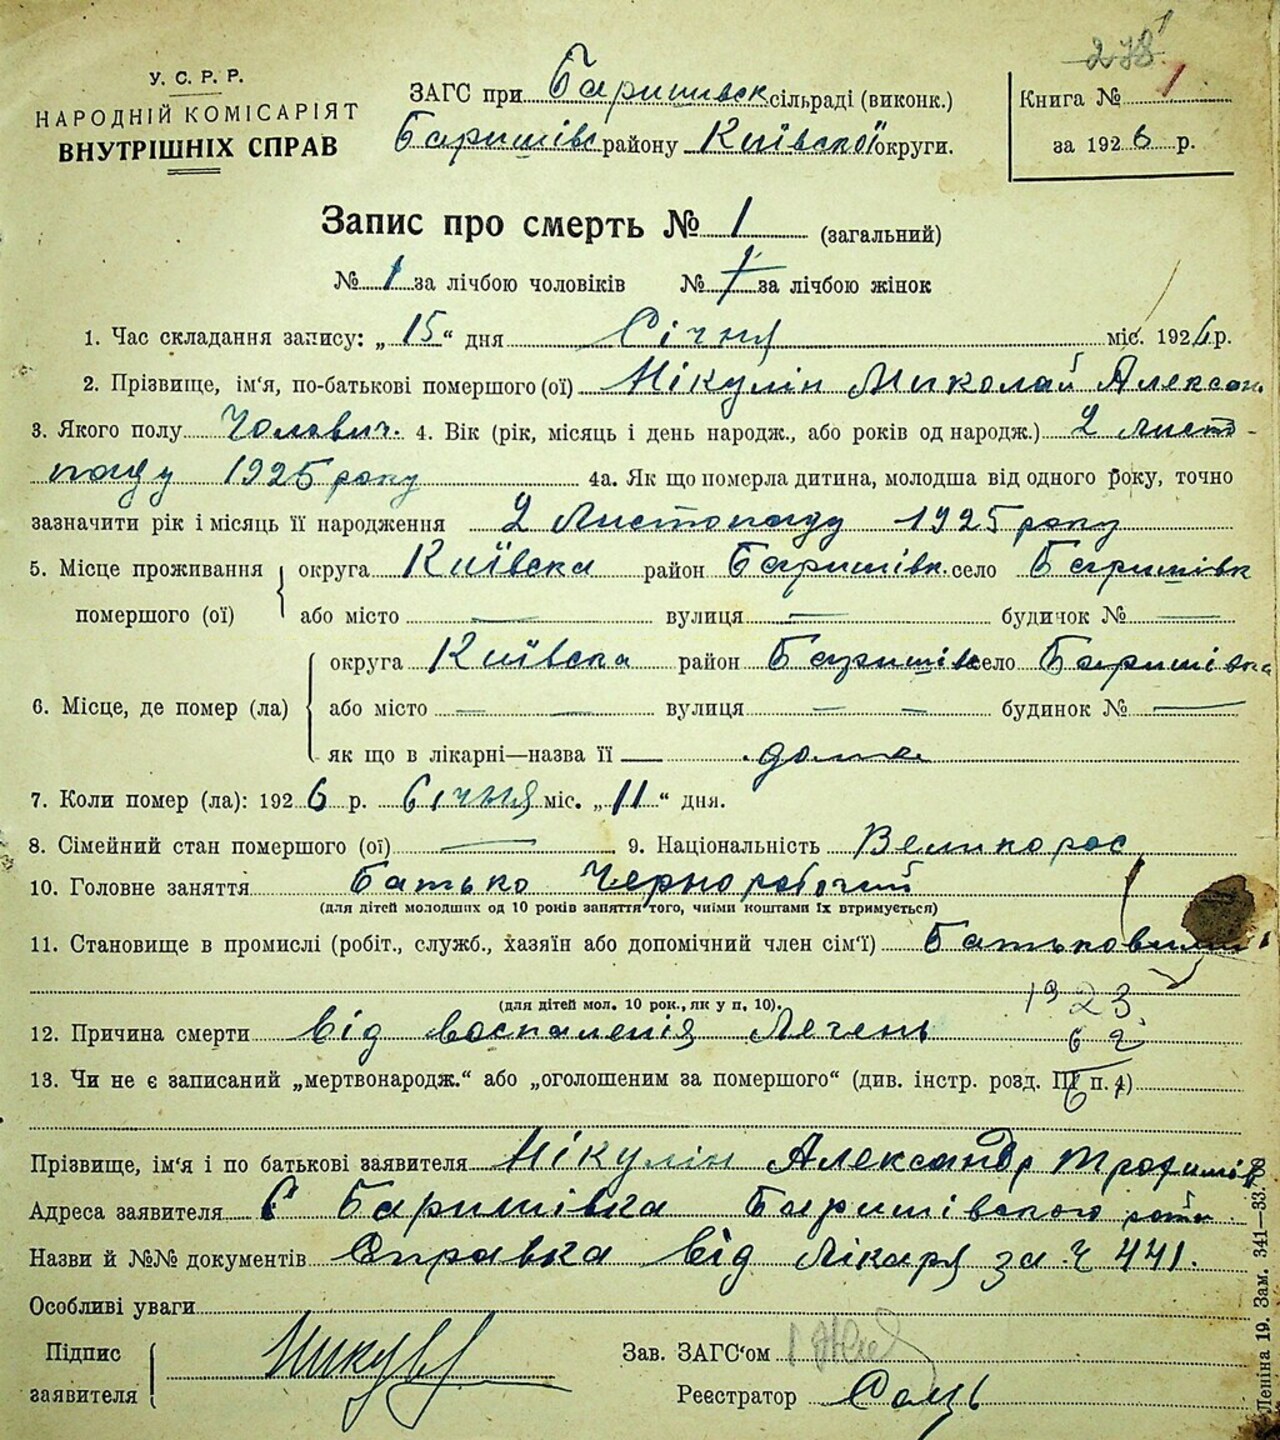 278
У. С. Р. Р.
НАРОДНІЙ КОМІСАРІЯТ
ВНУТРІШНІХ СПРАВ
ЗАГС при Баришивск сільраді (виконк.)
Баришівс району Київської округи.
Книга № 1
за 1926 р.
Запис про смерть № 1 (загальний)
№ 1 за лічбою чоловіків № за лічбою жінок
1. Час складання запису: „15“ дня Січня міс. 1926 р.
2. Прізвище, ім‘я, по-батькові помершого (ої) Нікулін Миколай Алексан.
3. Якого полу Чолович. 4. Вік (рік, місяць і день народж., або років од народж.) 2 Листо-
паду 1925 року 4а. Як що померла дитина, молодша від одного року, точно
зазначити рік і місяць її народження 2 Листопаду 1925 року
5. Місце проживання округа Київска район Баришівк. село Баришівк
помершого (ої) або місто — вулиця — будинок № —
округа Київска район Баришівк село Баришівка
6. Місце, де помер (ла) або місто — — вулиця — — будинок № —
як що в лікарні—назва її — дома
7. Коли помер (ла): 1926 р. Січня міс. „11“ дня.
8. Сімейний стан помершого (ої) — 9. Національність Великорос
10. Головне заняття Батько Чернорабочий
(для дітей молодших од 10 років заняття того, чиїми коштами їх втримується)
11. Становище в промислі (робіт., служб., хазяїн або допомічний член сім‘ї)
(для дітей мол. 10 рок., як у п. 10).
1923
62
12. Причина смерти від воспаленія Лечень
13. Чи не є записаний „мертвонародж.“ або „оголошеним за помершого“ (див. інстр. розд. III п. 4)
6
Прізвище, ім‘я і по батькові заявителя Нікулін Александр Трофимів
Адреса заявителя С Баришівка Баришівского
Назви й №№ документів Справка від Лікаря за ч 441.
Особливі уваги
Підпис
заявителя
Зав. ЗАГС‘ом
Реєстратор
Леніна 19. Зам. 341—33.